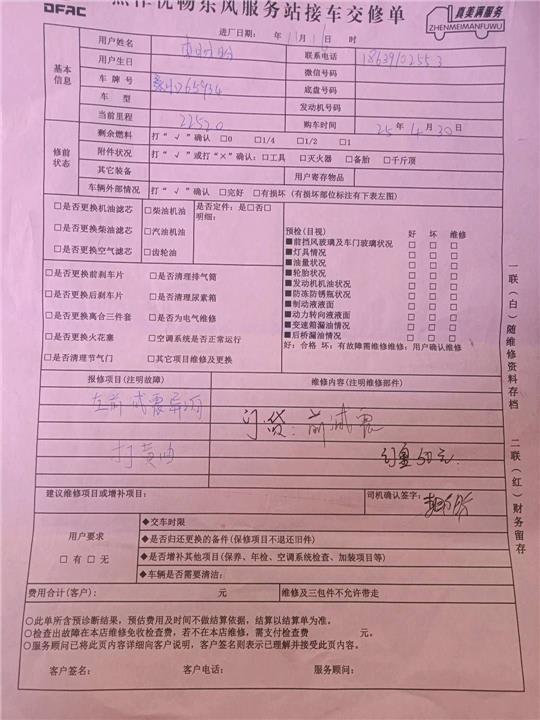 DFAC
焦作优畅东风服务站接车交修单
真美满服务
ZHENMEIMANFUWU
进厂日期： 年 11 月 1 日 时
基本信息
用户姓名
联系电话
用户生日
微信号码
车牌号
底盘号码
车 型
发动机号码
当前里程 22520
购车时间 25 年 4 月 30 日
修前状态
剩余燃料 打“√”确认 □0 □1/4 □1/2 □1
附件状况 打“√”或打“×”确认：□工具 □灭火器 □备胎 □千斤顶
其它装备
用户寄存物品
车辆外部情况 打“√”确认 □完好 □有损坏（有损坏部位标注有下表左图）
□是否更换机油滤芯 □柴油机油
□是否更换柴油滤芯 □汽油机油
□是否更换空气滤芯 □齿轮油
是否定件：是□否□
明细：
□是否更换前刹车片 □是否清理排气筒
□是否更换后刹车片 □是否清理尿素箱
□是否更换离合三件套 □是否为电气维修
□是否更换火花塞 □空调系统是否正常运行
□是否清理节气门 □其它项目维修及更换
预检(目视) 好 坏 维修
■前挡风玻璃及车门玻璃状况 □ □ □
■灯具情况 □ □ □
■油量状况 □ □ □
■轮胎状况 □ □ □
■发动机机油状况 □ □ □
■防冻防锈瓶状况 □ □ □
■制动液液面 □ □ □
■动力转向液液面 □ □ □
■变速箱漏油情况 □ □ □
■后桥漏油情况 □ □ □
好：合格 坏：有故障需维修维修：用户确认维修
报修项目(注明故障)
维修内容(注明维修部件)
左前减震异响
订货：前减震
打黄油
订金50元
建议维修项目或增补项目：
司机确认签字：
用户要求
□有 □无
◆交车时限
◆是否归还更换的备件(保修项目不退还旧件)
◆是否增补其他项目(保养、年检、空调系统检查、加装项目等)
◆车辆是否需要清洁：
费用合计(客户)： 元
维修及三包件不允许带走
○此单所含预诊断结果，预估费用及时间不做结算依据，结算以结算单为准。
○检查出故障在本店维修免收检查费，若不在本店维修，需支付检查费 元。
○服务顾问已将此页内容详细向客户说明，客户签名则表示已理解并接受此页内容。
客户签名： 客户电话： 服务顾问：
一联(白)随维修资料存档
二联(红)财务留存